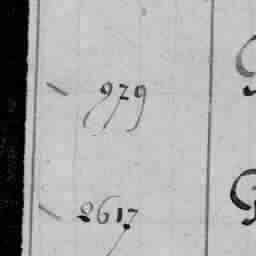 979
2617